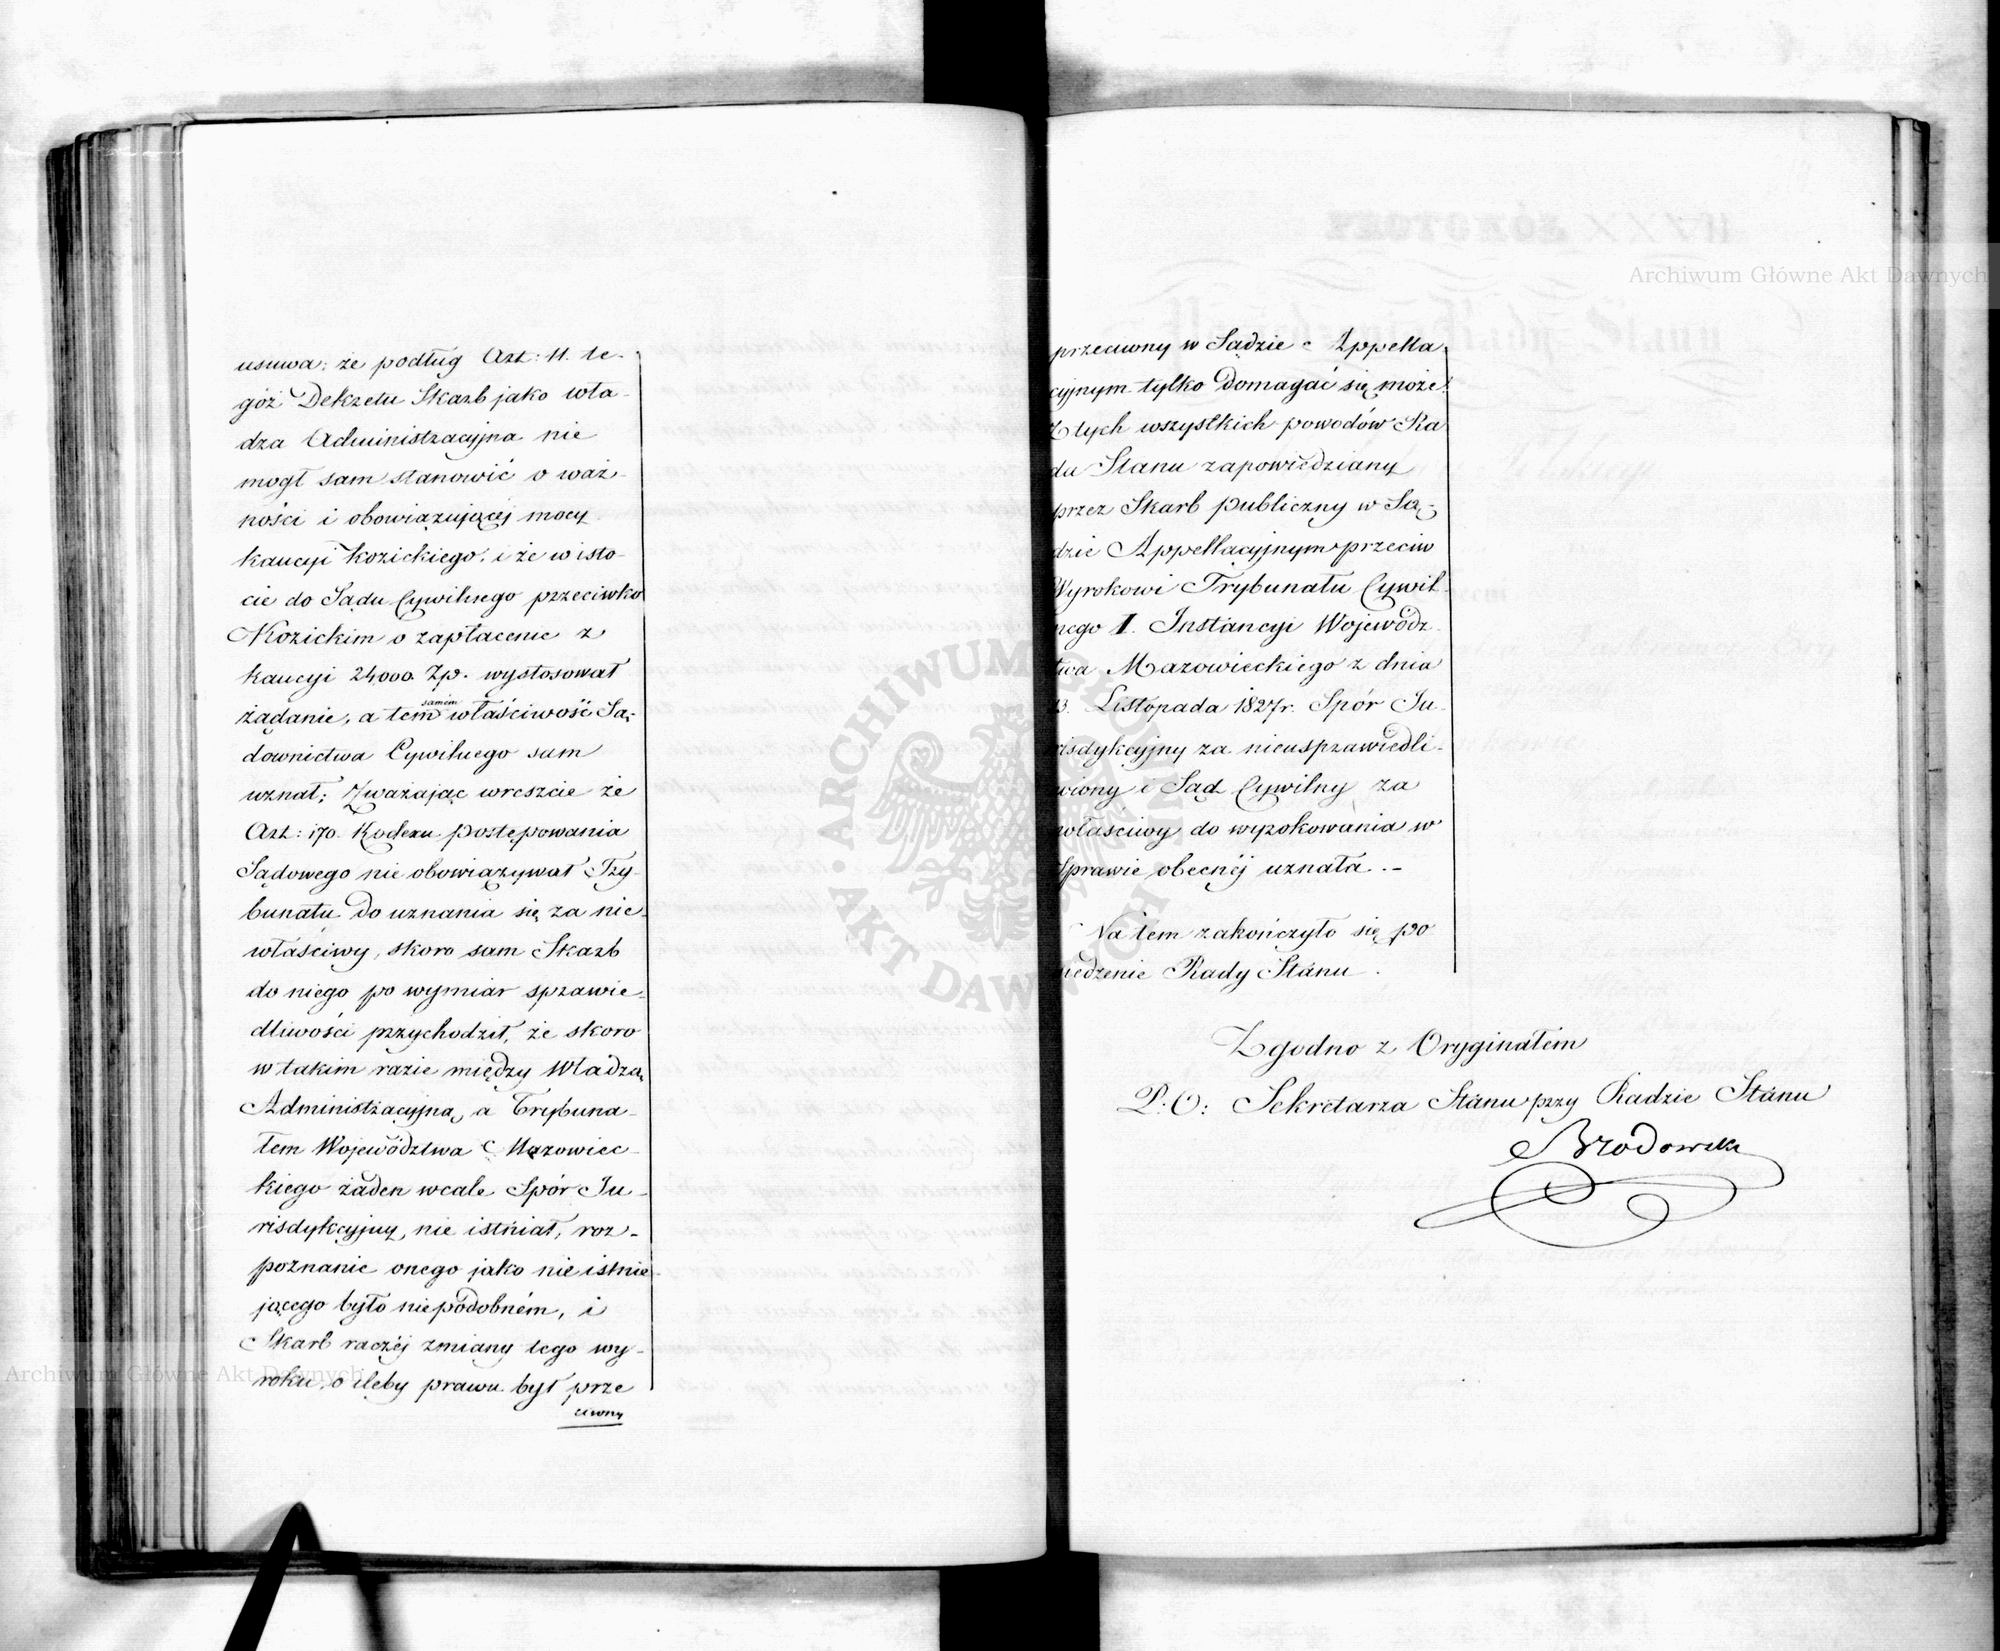 usuwa; że podług Art: 11. te-
góż Dekretu Skarb jako wła-
dza Administracyjna nie
mogł sam stanowić o waż-
ności i obowiązującéj mocy
kaucyi Kozickiego, i że w isto-
cie do Sądu Cywilnego przeciwko
Kozickim o zapłacenie z
kaucyi 24,000. Zp. wystosował
żądanie, a tem samem właściwość Są-
downictwa Cywilnego sam
uznał; Zważając wreszcie że
Art: 170. Kodexu postępowania
Sądowego nie obowiązywał Try-
bunału do uznania się za nie-
właściwy, skoro sam Skarb
do niego po wymiar sprawie-
dliwości przychodził, że skoro
w takim razie między Władzą
Administracyjną, a Trybuna-
łem Województwa Mazowiec-
kiego żaden wcale Spór Ju-
risdykcyjny, nie istniał, roz-
poznanie onego jako nieistnie-
jącego było niepodobném, i
Skarb raczéj zmiany tego wy-
roku, o ileby prawu był prze
ciwny
przeciwny w Sądzie Appella
cyjnym tylko domagać się może.
Z tych wszystkich powodów Ra
da Stanu zapowiedziany
przez Skarb publiczny w Są-
dzie Appellacyjnym przeciw
Wyrokowi Trybunału Cywil-
nego I. Instancyi Wojewódz-
twa Mazowieckiego z dnia
13. Listopada 1827r. Spór Ju-
risdykcyjny za nieusprawiedli-
wiony i Sąd Cywilny za
właściwy do wyrokowania w
Sprawie obecnéj uznała. -
Na tem zakończyło się po
siedzenie Rady Stanu.
Zgodno z Oryginałem
P. O: Sekretarza Stanu przy Radzie Stanu
Brodowski
Archiwum Główne Akt Dawnych
Archiwum Główne Akt Dawnych
ARCHIWUM GŁÓWNE AKT DAWNYCH